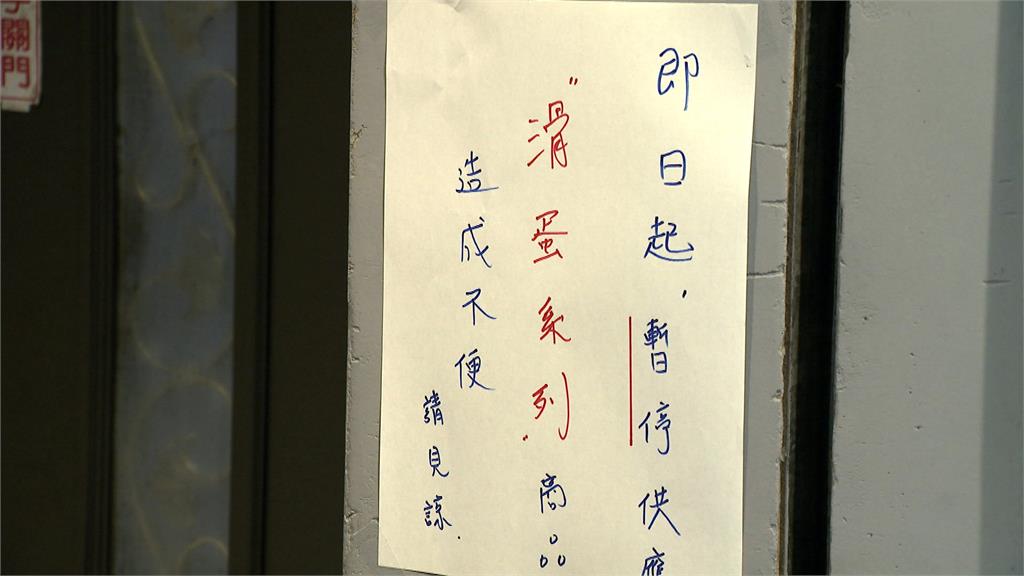 即日起，暫停供應
"滑蛋系列"商品
造成不便
請見諒.
關門